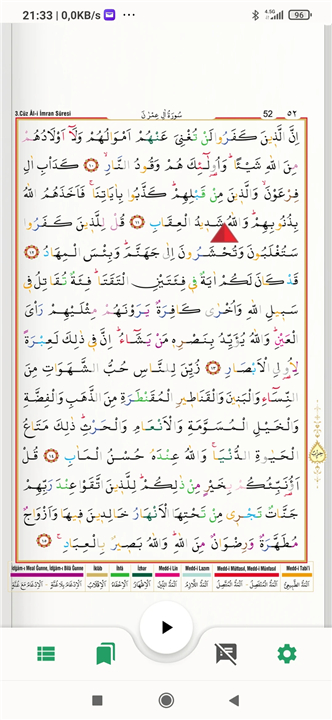 21:33 | 0,0KB/s ··· 4,5G 96
3.Cüz Âl-i İmran Sûresi سُورَةُ اٰلِ عِمْرٰنَ 52 ٥٢
اِنَّ الَّذ۪ينَ كَفَرُوا لَنْ تُغْنِيَ عَنْهُمْ اَمْوَالُهُمْ وَلَٓا اَوْلَادُهُمْ
مِنَ اللّٰهِ شَيْـًٔاۜ وَاُو۬لٰٓئِكَ هُمْ وَقُودُ النَّارِۙ ﴿١٠﴾ كَدَأْبِ اٰلِ
فِرْعَوْنَۙ وَالَّذ۪ينَ مِنْ قَبْلِهِمْۜ كَذَّبُوا بِاٰيَاتِنَاۚ فَاَخَذَهُمُ اللّٰهُ
بِذُنُوبِهِمْۜ وَاللّٰهُ شَد۪يدُ الْعِقَابِ ﴿١١﴾ قُلْ لِلَّذ۪ينَ كَفَرُوا
سَتُغْلَبُونَ وَتُحْشَرُونَ اِلٰى جَهَنَّمَۜ وَبِئْسَ الْمِهَادُ ﴿١٢﴾
قَدْ كَانَ لَكُمْ اٰيَةٌ ف۪ي فِئَتَيْنِ الْتَقَتَاۜ فِئَةٌ تُقَاتِلُ ف۪ي
سَب۪يلِ اللّٰهِ وَاُخْرٰى كَافِرَةٌ يَرَوْنَهُمْ مِثْلَيْهِمْ رَأْيَ
الْعَيْنِۜ وَاللّٰهُ يُؤَيِّدُ بِنَصْرِه۪ مَنْ يَشَٓاءُۜ اِنَّ ف۪ي ذٰلِكَ لَعِبْرَةً
لِاُو۬لِي الْاَبْصَارِ ﴿١٣﴾ زُيِّنَ لِلنَّاسِ حُبُّ الشَّهَوَاتِ مِنَ
النِّسَٓاءِ وَالْبَن۪ينَ وَالْقَنَاط۪يرِ الْمُقَنْطَرَةِ مِنَ الذَّهَبِ وَالْفِضَّةِ
وَالْخَيْلِ الْمُسَوَّمَةِ وَالْاَنْعَامِ وَالْحَرْثِۜ ذٰلِكَ مَتَاعُ
الْحَيٰوةِ الدُّنْيَاۚ وَاللّٰهُ عِنْدَهُ حُسْنُ الْمَاٰبِ ﴿١٤﴾ قُلْ
اَؤُ۬نَبِّئُكُمْ بِخَيْرٍ مِنْ ذٰلِكُمْۜ لِلَّذ۪ينَ اتَّقَوْا عِنْدَ رَبِّهِمْ
جَنَّاتٌ تَجْر۪ي مِنْ تَحْتِهَا الْاَنْهَارُ خَالِد۪ينَ ف۪يهَا وَاَزْوَاجٌ
مُطَهَّرَةٌ وَرِضْوَانٌ مِنَ اللّٰهِۜ وَاللّٰهُ بَص۪يرٌ بِالْعِبَادِۚ ﴿١٥﴾
İdğâm-ı Meal Ğunne, İdğâm-ı Bilâ Ğunne İklâb İhfâ İzhar Medd-i Lin Medd-i Lazım Medd-i Muttasıl, Medd-i Münfasıl Medd-i Tabi'î